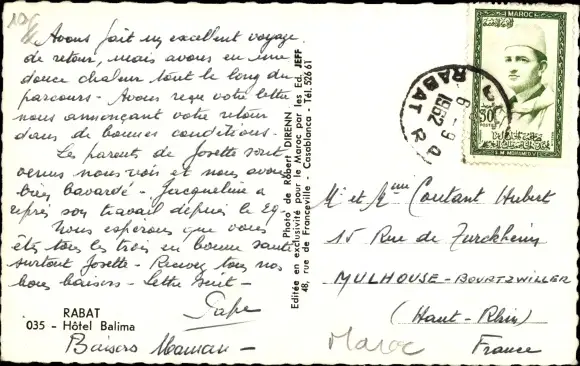 Avons fait un excellent voyage
de retour, mais avons eu une
douce chaleur tout le long du
parcours - Avons reçu votre lettre
nous annonçant votre retour
dans de bonnes conditions -
Les parents de Josette sont
venus nous voir et nous avons
bien bavardé - Jacqueline a
repris son travail depuis le 29 -
Nous espérons que vous
êtes tous les trois en bonne santé
surtout Josette - Recevez tous nos
bons baisers - lettre suit -
Papa
Baisers Maman -
RABAT
035 - Hôtel Balima
Photo de Robert DIRENN
Editée en exclusivité pour le Maroc par les Ed. JEFF
48, rue de Franceville - Casablanca - Tél. 526 61
MAROC
30
POSTES
S.M. MOHAMED V
RABAT R.P
6 - 9
1962
Mr et Mme Coutant Hubert
15 Rue de Zurckheim
MULHOUSE-BOURTZWILLER
(Haut-Rhin)
France
Maroc